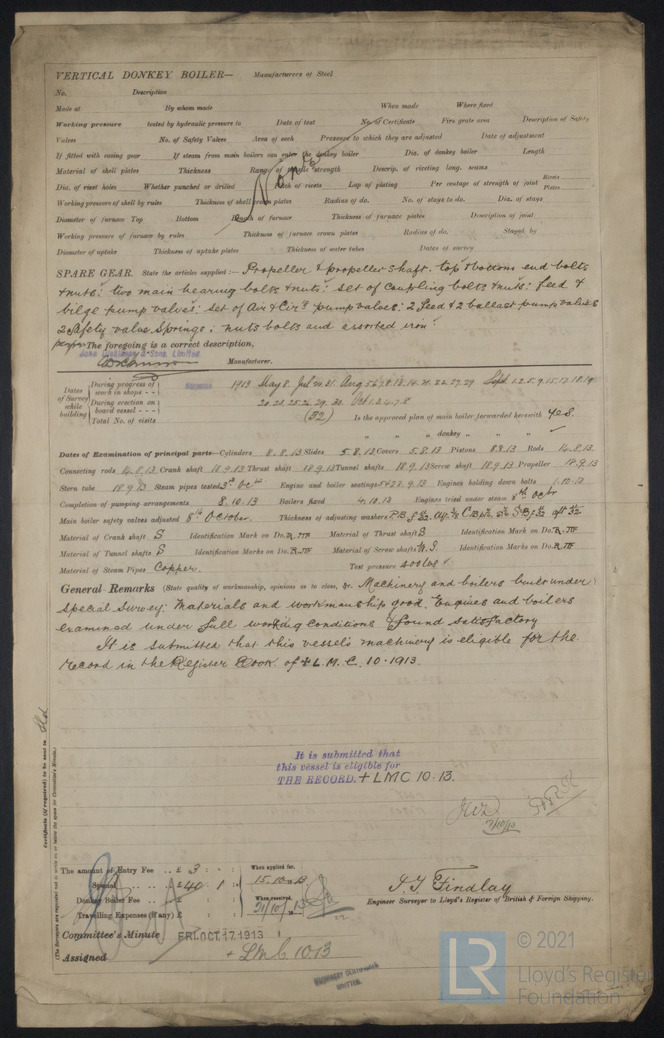 VERTICAL DONKEY BOILER— Manufacturers of Steel
No. Description
Made at By whom made When made Where fixed
Working pressure tested by hydraulic pressure to Date of test No. of Certificate Fire grate area Description of Safety
Valves No. of Safety Valves Area of each Pressure to which they are adjusted Date of adjustment
If fitted with easing gear If steam from main boilers can enter the donkey boiler Dia. of donkey boiler Length
Material of shell plates Thickness Range of tensile strength Descrip. of riveting long. seams
None
Dia. of rivet holes Whether punched or drilled Pitch of rivets Lap of plating Per centage of strength of joint Rivets Plates
Working pressure of shell by rules Thickness of shell crown plates Radius of do. No. of stays to do. Dia. of stays
Diameter of furnace Top Bottom Length of furnace Thickness of furnace plates Description of joint
Working pressure of furnace by rules Thickness of furnace crown plates Radius of do. Stayed by
Diameter of uptake Thickness of uptake plates Thickness of water tubes Dates of survey
SPARE GEAR. State the articles supplied:— Propeller & propeller shaft. top & bottom end bolts
& nuts: two main bearing bolts & nuts: set of coupling bolts & nuts: feed &
bilge pump valves: set of Air & Circ. pump valves: 2 feed & 2 ballast pump valves
2 safety valve springs: nuts bolts and assorted iron:
The foregoing is a correct description,
Manufacturer.
Dates of Survey while building
During progress of work in shops - - 1913 May 8. Jul 24.31. Aug 5.6.7.8. Sept 1.2.5.9.15.17.18.19
During erection on board vessel - - - 20.21.25.26.29.30. Oct 1.2.4.7.8
Total No. of visits (32) Is the approved plan of main boiler forwarded herewith yes.
" " " donkey " "
Dates of Examination of principal parts—Cylinders 8.8.13 Slides 5.8.13 Covers 5.8.13 Pistons 8.8.13 Rods 14.8.13
Connecting rods 14.8.13 Crank shaft 18.9.13 Thrust shaft 18.9.13 Tunnel shafts 18.9.13 Screw shaft 18.9.13 Propeller 18.9.13
Stern tube 18.9.13 Steam pipes tested 3rd Oct Engine and boiler seatings Engines holding down bolts 1.10.13
Completion of pumping arrangements 8.10.13 Boilers fixed 4.10.13 Engines tried under steam 8th Octbr
Main boiler safety valves adjusted 8th October. Thickness of adjusting washers
Material of Crank shaft S Identification Mark on Do. Material of Thrust shaft S Identification Mark on Do.
Material of Tunnel shafts S Identification Marks on Do. Material of Screw shafts Identification Marks on Do.
Material of Steam Pipes Copper. Test pressure 500 lbs
General Remarks (State quality of workmanship, opinions as to class, &c. Machinery and boilers built under
special survey: Materials and workmanship good. Engines and boilers
examined under full working conditions & found satisfactory
It is submitted that this vessel's machinery is eligible for the
record in the Register Book of + L.M.C. 10.1913.
It is submitted that
this vessel is eligible for
THE RECORD. + LMC 10.13.
The amount of Entry Fee .. £ 3 : : When applied for,
Special .. .. £ 40 : 1 : 15.10.13
Donkey Boiler Fee .. £ : : When received,
Travelling Expenses (if any) £ : : 21/10/13
Engineer Surveyor to Lloyd's Register of British & Foreign Shipping.
Committee's Minute FRI. OCT. 17. 1913
Assigned + LMC 10.13
© 2021
LR
Lloyd's Register
Foundation